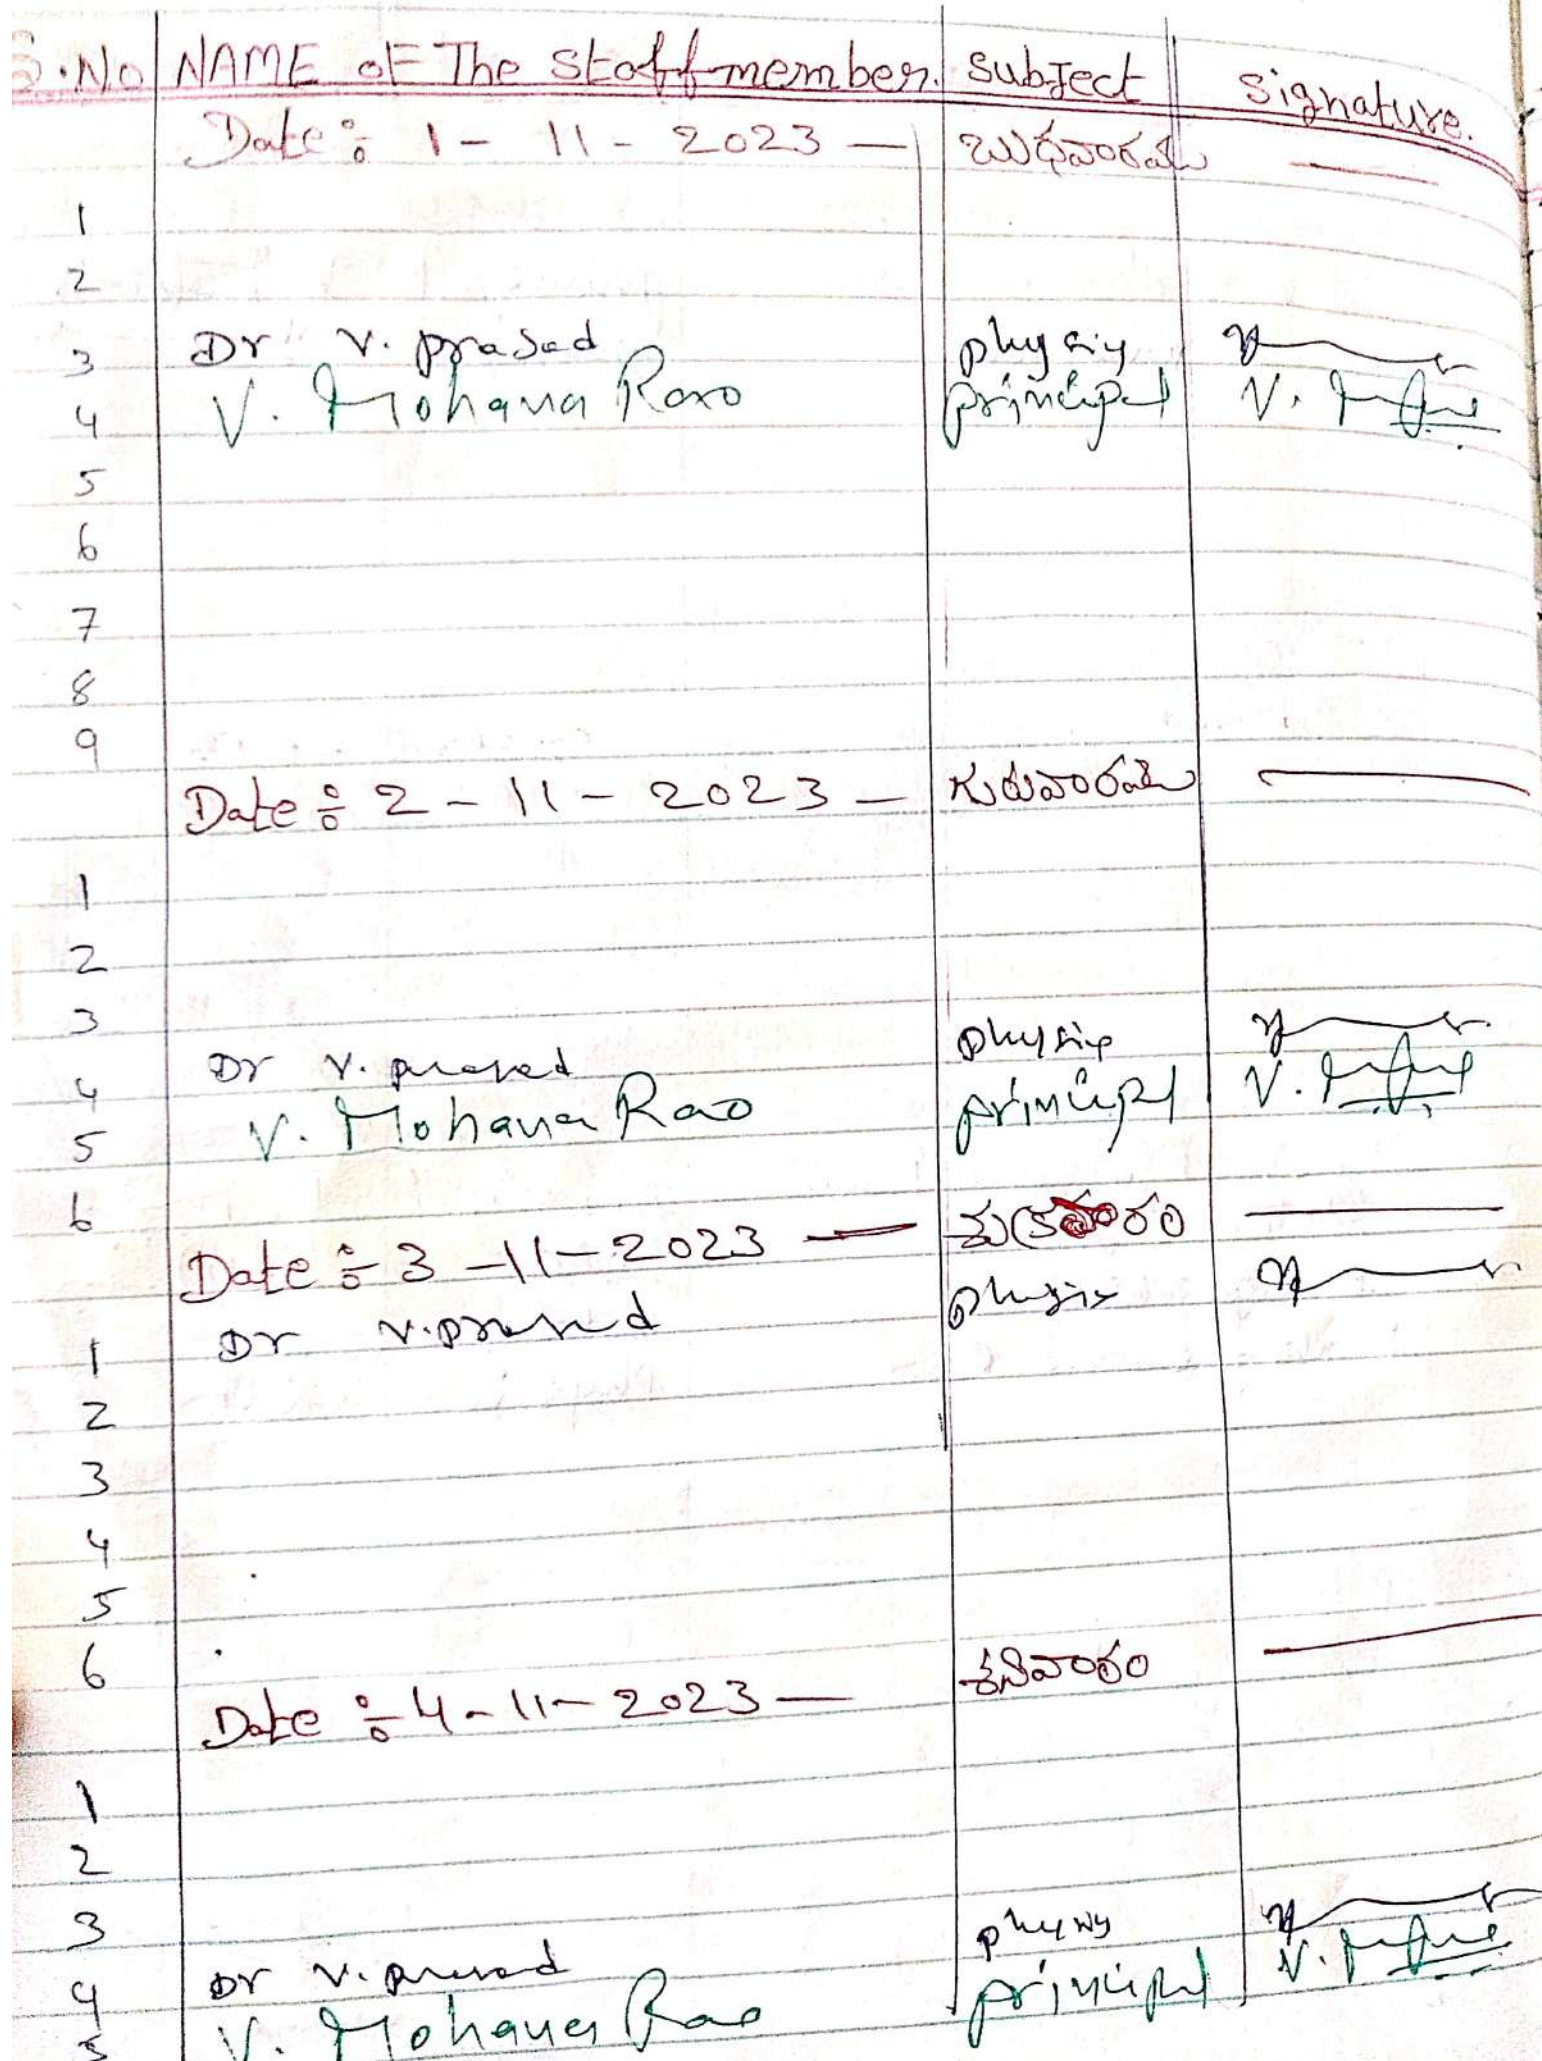 S.No NAME oF The Staff member. subject signature.
Date : 1 - 11 - 2023 — బుధవారము —
1
2
3 Dr V. prasad physics
4 V. Mohana Rao principal V.
5
6
7
8
9
Date : 2 - 11 - 2023 — గురువారము —
1
2
3
4 Dr V. prasad physics
5 V. Mohana Rao principal V.
6
Date : 3 - 11 - 2023 — శుక్రవారం —
1 Dr V. prasad physics
2
3
4
5
6
Date : 4 - 11 - 2023 — శనివారం —
1
2
3
4 Dr V. prasad physics
5 V. Mohana Rao principal V.